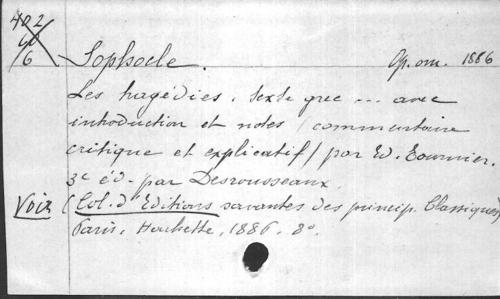 402
60
6
Sophocle. Op. om. 1886
Les tragédies, texte grec ... avec
introduction et notes / commentaire
critique et explicatif / par Ed. Tournier.
3e éd. par Desrousseaux.
Voir (Col. d'Editions savantes des princip. Classiques)
Paris, Hachette, 1886. 8o.